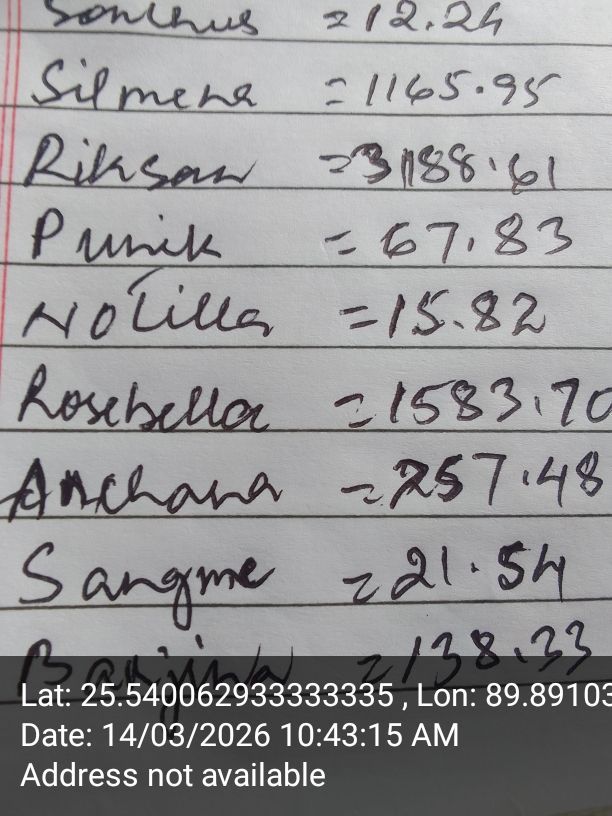 Santhus = 12.24
Silmena = 1165.95
Riksan = 3188.61
Punik = 67.83
Notilla = 15.82
Rosebella = 1583.70
Anchana = 257.48
Sangme = 21.54
= 138.33
Lat: 25.540062933333335 , Lon: 89.89103
Date: 14/03/2026 10:43:15 AM
Address not available